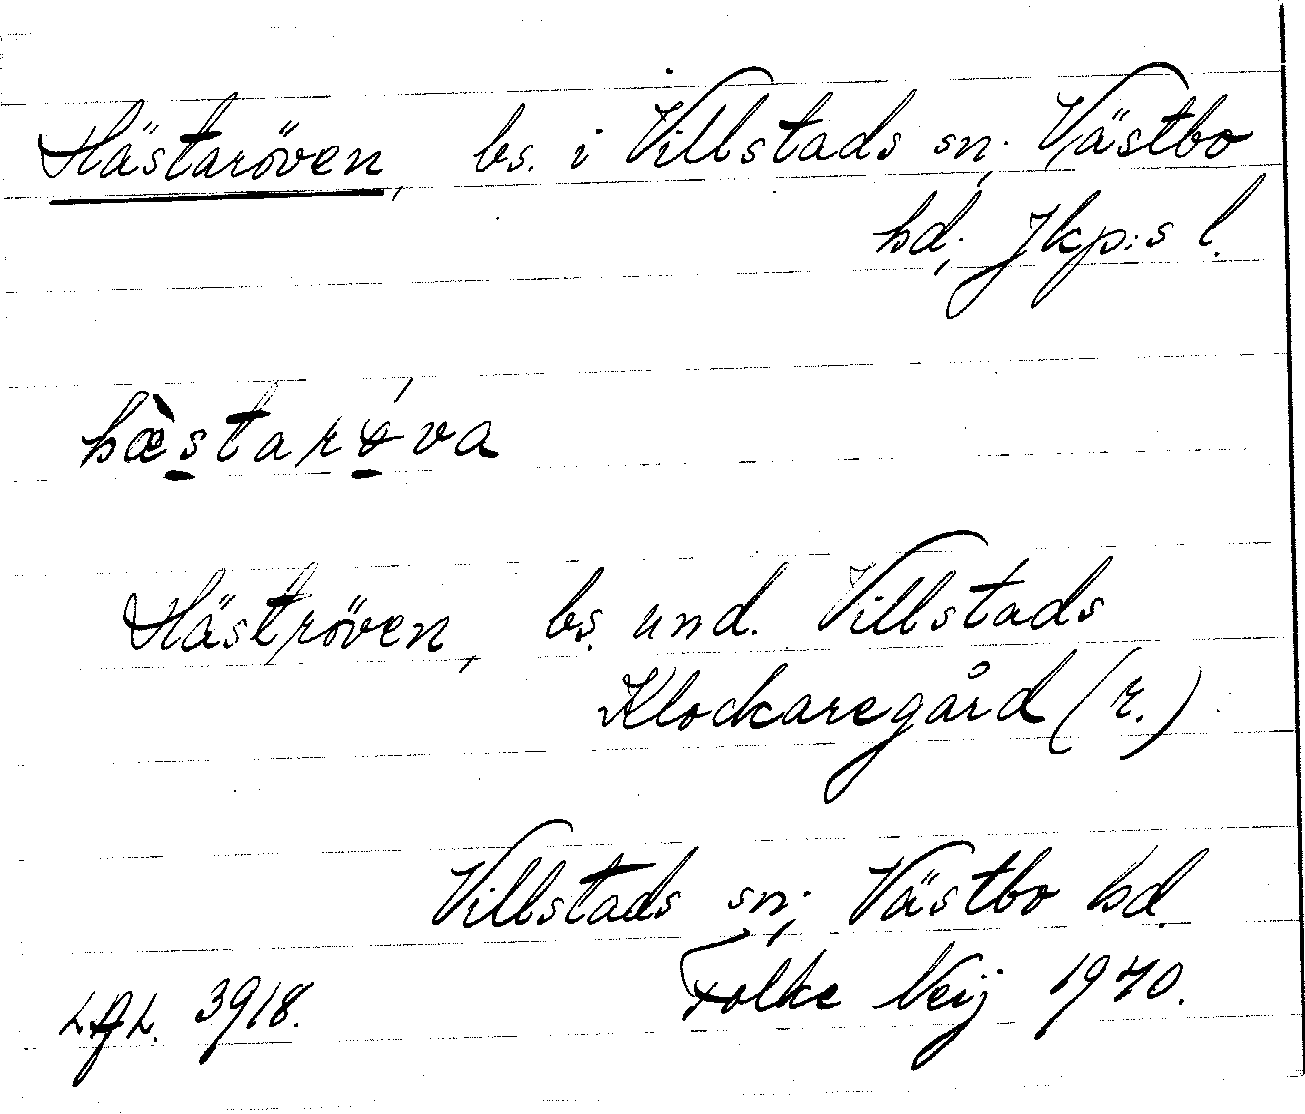 Hästaröven, bs. i Villstads sn; Västbo
hd; Jkp:s l.
hæ̀starǿva
Häströven, bs. und. Villstads
Klockaregård (r.)
Villstads sn; Västbo hd.
Folke Neij 1940.
LAL. 3918.